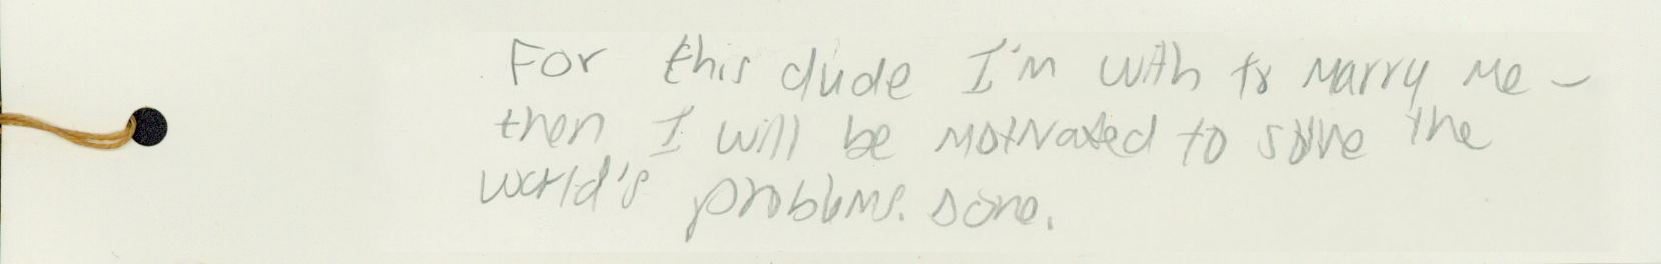 For this dude I'm with to marry me -
then I will be motivated to solve the
world's problems. Done.